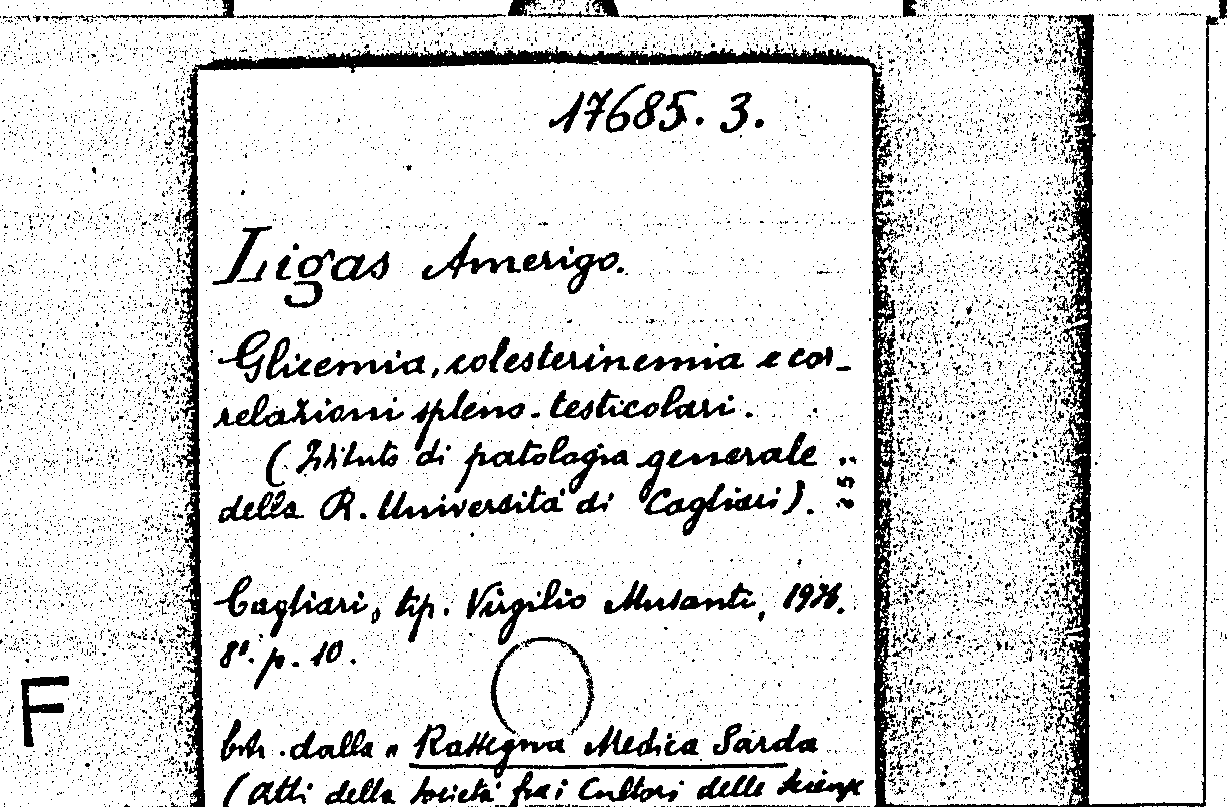 17685. 3.
Ligas Amerigo.
Glicemia, colesterinemia e cor-
relazioni spleno-testicolari.
(Istituto di patologia generale
della R. Università di Cagliari).
Cagliari, tip. Virgilio Musanti,
8°. p. 10.
Estr. dalla "Rassegna Medica Sarda
(Atti della Società fra i Cultori delle Scienze
F